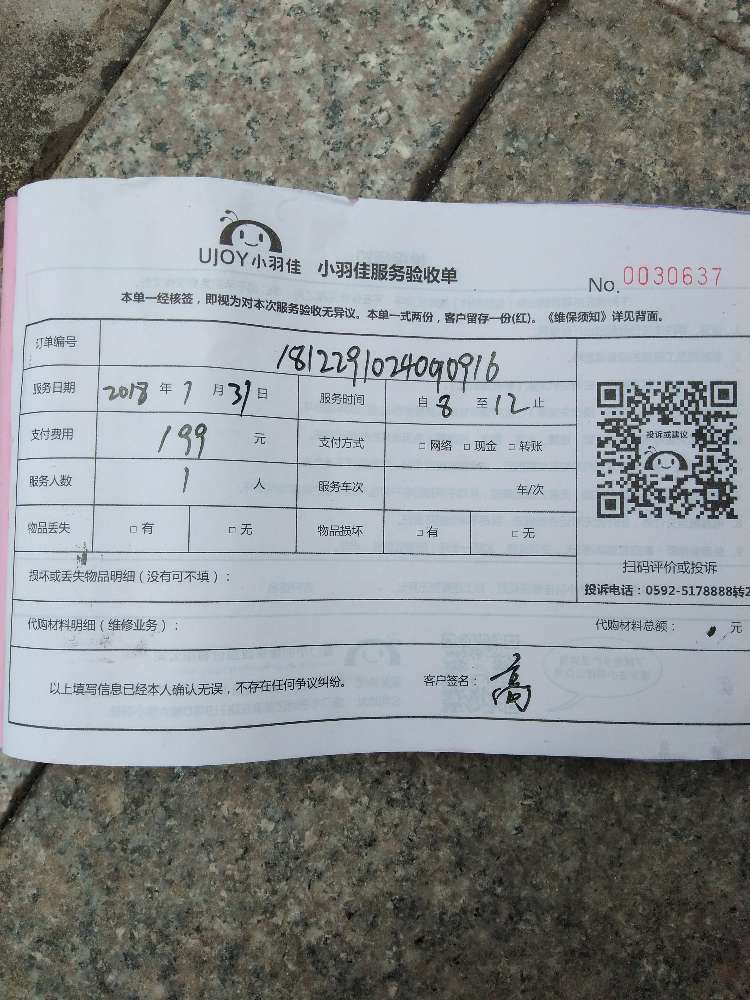 UJOY小羽佳 小羽佳服务验收单
No. 0030637
本单一经核签，即视为对本次服务验收无异议。本单一式两份，客户留存一份(红)。《维保须知》详见背面。
订单编号 1812291024090916
服务日期 2018 年 7 月 31 日 服务时间 自 8 至 12 止
支付费用 199 元 支付方式 □ 网络 □ 现金 □ 转账
服务人数 1 人 服务车次 车/次
物品丢失 □ 有 □ 无 物品损坏 □ 有 □ 无
投诉或建议
扫码评价或投诉
投诉电话：0592-5178888转2
损坏或丢失物品明细（没有可不填）：
代购材料明细（维修业务）： 代购材料总额： 元
以上填写信息已经本人确认无误，不存在任何争议纠纷。 客户签名： 高